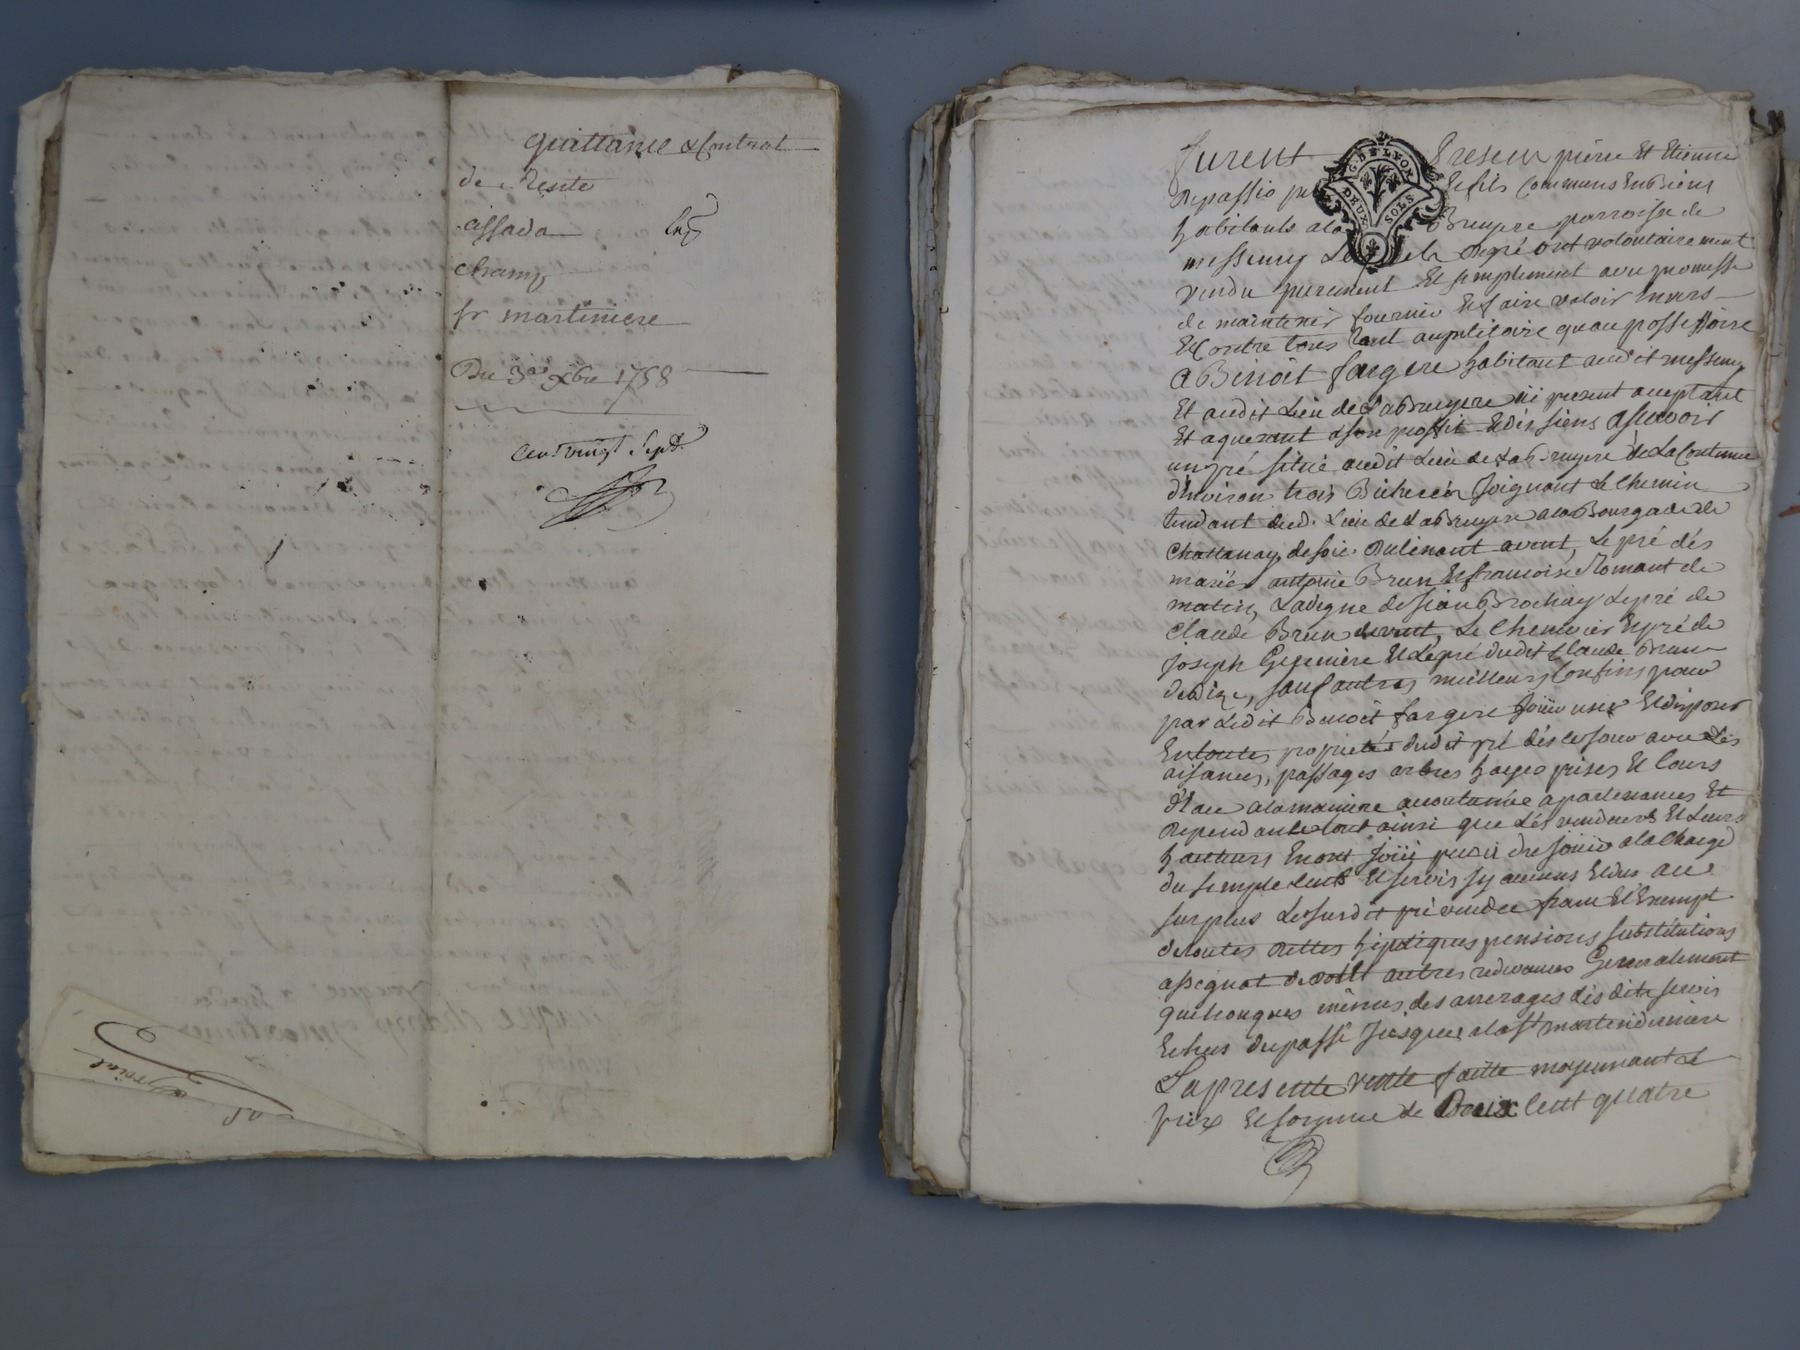 quittance & Contrat
de Rente
assada
champ
sr martiniere
Du 3e xbre 1758
Cent vingt Sept
Furent Presens pierre Et Etienne
Depassio pe Et fils Communs En Biens
habitants a la Bruyere parroisse de
messimy Le de Gré ont volontairement
vendu purement Et simplement avec promesse
de maintenir fournir Et faire valoir Envers
Et Contre tous tant au petitoire qu'au possessoire
A Benoit fargere habitant audit messimy
Et audit Lieu de Labruyere ici present acceptant
Et aquerant a son profit Et des siens Asscavoir
un pré situé audit Lieu de Labruyere de La Contenue
d'Environ trois Bicherées Joignant Le Chemin
tendant dud. Lieu de Labruyere a la Bourgade de
Chattanay de soir Declinant avent, Le pré des
mariés antoine Brun Et francoise Romant de
matin, La vigne de Jean Brochay Le pré de
Claude Brun de vent, Le Chenevier Et pré de
joseph Et Le pré dudit Claude Brun
de Bize, sauf autres meilleurs Confins pour
par Ledit Benoit fargere Joüir user Et disposer
En toutes proprietés dudit pré dés ce jour avec Les
aisances, passages arbres hayes prises Et Cours
d'Eau a la maniere accoutumée apartenances Et
Dependances tout ainsi que Les vendeurs Et Leurs
hauteurs En ont Joüi pu et du Joüir a la Charge
du simple Cens Et servis sy aucuns Et dus au
surplus Le susdit pré vendu franc Et Exempt
de toutes dettes hipotiques pensions substitutions
assignat de et autres redevances Generalement
quelconques mêmes des arrerages des dits servis
Echus du passé Jusques a la st martin derniere
La presente vente faitte moyennant Le
prix Et somme de Deux Cent quatre
G. DE LYON
DEUX SOLS